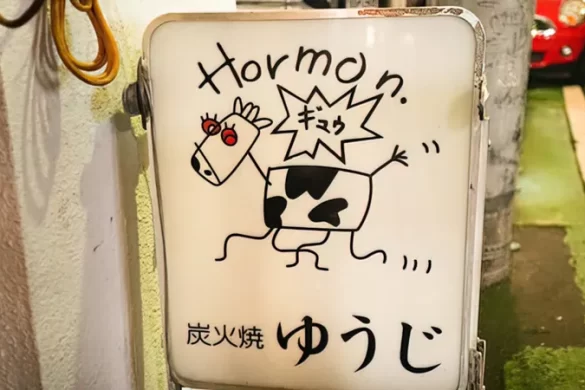 Hormon.
ギュウ
炭火焼 ゆうじ